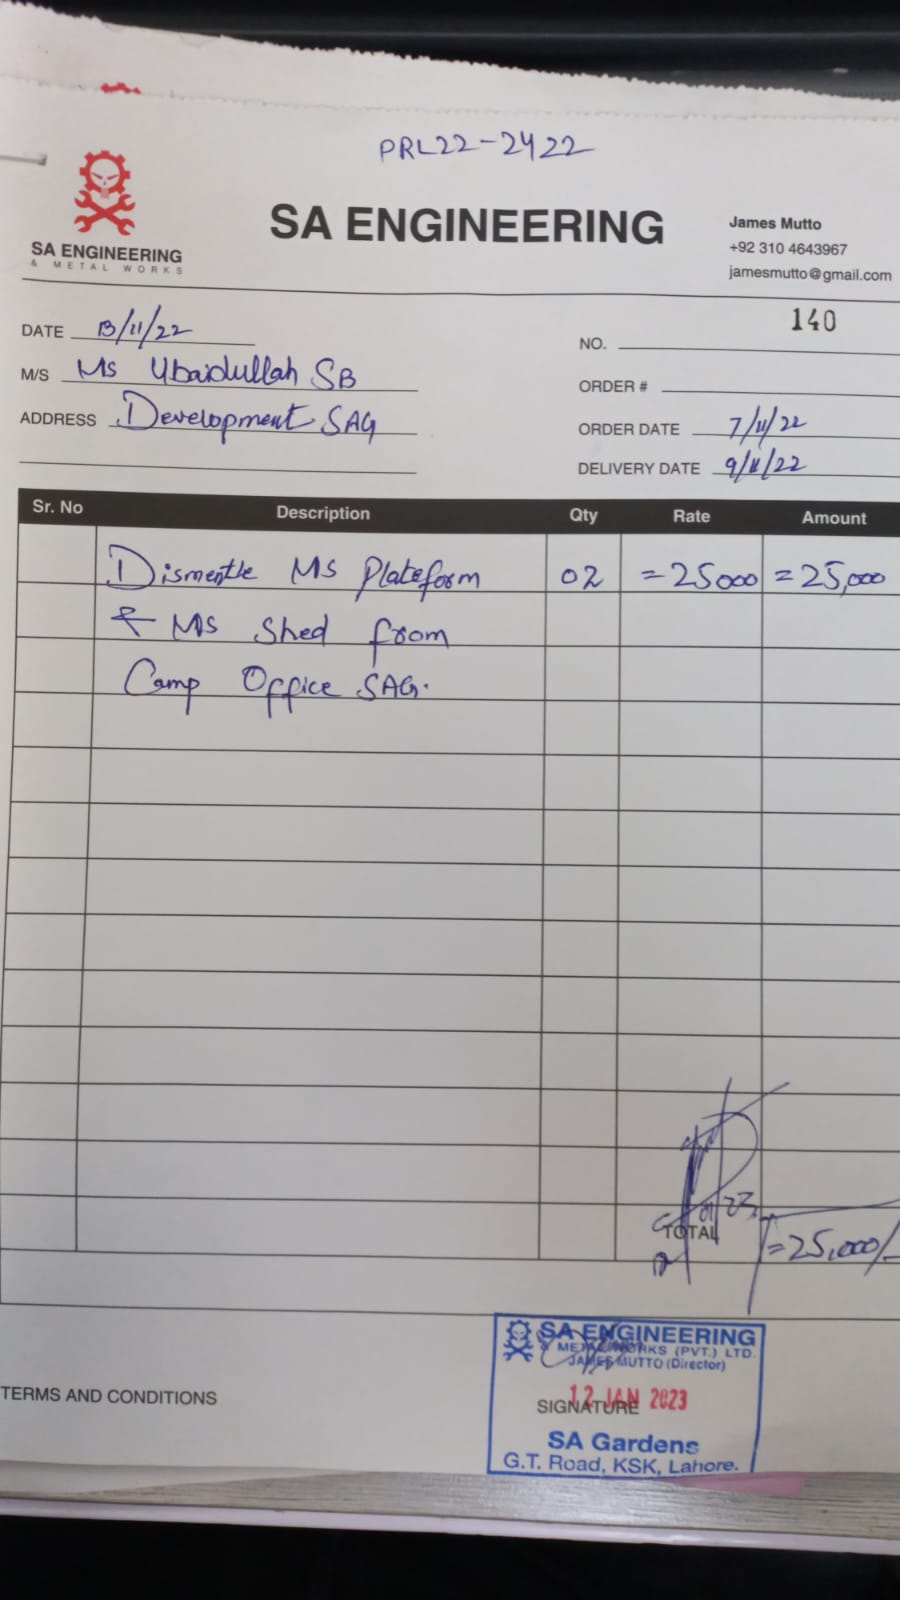 PRL22-2422
SA ENGINEERING
& METAL WORKS
SA ENGINEERING
James Mutto
+92 310 4643967
jamesmutto@gmail.com
DATE 13/11/22
M/S Ms Ubaidullah SB
ADDRESS Development SAG
NO. 140
ORDER #
ORDER DATE 7/11/22
DELIVERY DATE 9/11/22
Sr. No Description Qty Rate Amount
Dismentle MS Plateform 02 =25000 =25,000
& MS Shed from
Camp Office SAG.
TOTAL =25,000/-
SA ENGINEERING
& METAL WORKS (PVT.) LTD.
JAMES MUTTO (Director)
12 JAN 2023
SIGNATURE
SA Gardens
G.T. Road, KSK, Lahore.
TERMS AND CONDITIONS